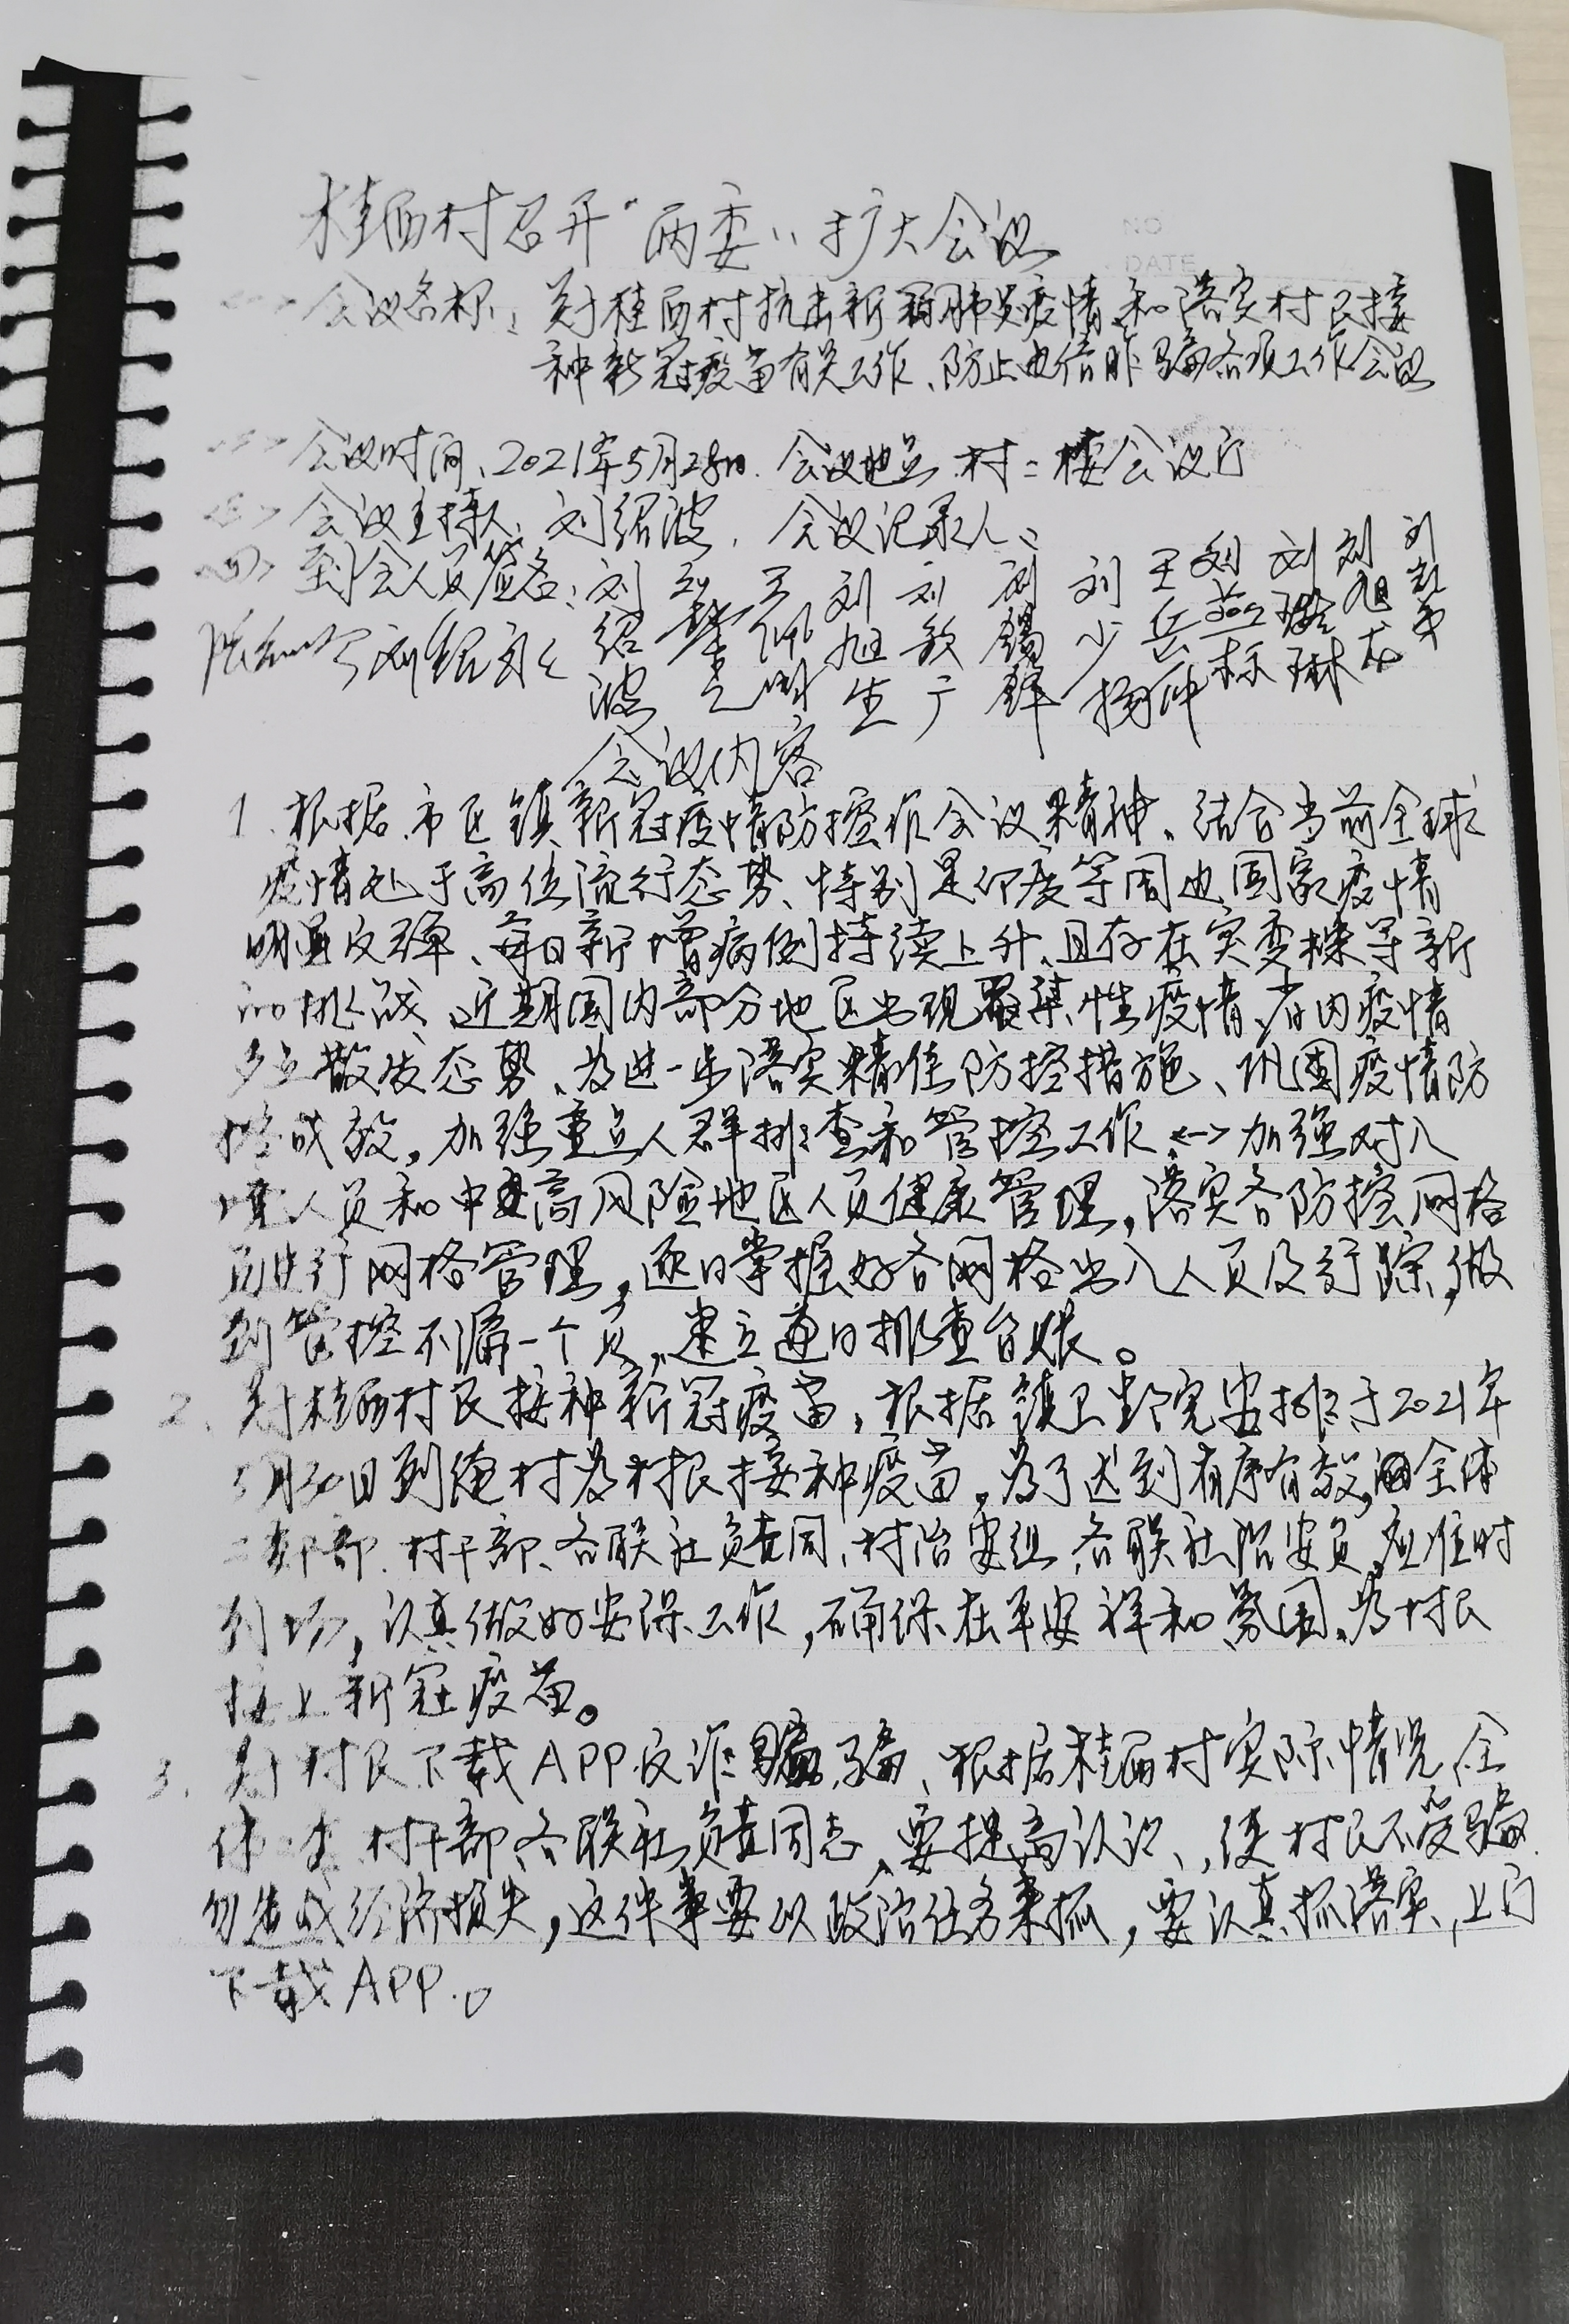 桂西村召开“两委”扩大会议
NO
DATE
会议名称：对桂西村抗击新冠肺炎疫情和落实村民接
种新冠疫苗有关工作、防止电信诈骗各项工作会议
<二> 会议时间、2021年5月28日.会议地点.村二楼会议厅
<三> 会议主持人：刘绍波.会议记录人：
<四> 到会人员签名：刘绍波 刘旭生 刘敦广 刘锡锋 刘少扬 王岳仲 刘燕标 刘琳 刘旭龙
会议内容
1.根据.市区镇新冠疫情防控工作会议精神、结合当前全球
疫情处于高位流行态势、特别是印度等周边国家疫情
明显反弹、每日新增病例持续上升、且存在突变株等新
的挑战、近期国内部分地区出现聚集性疫情、省内疫情
多点散发态势、为进一步落实精准防控措施、巩固疫情防
控成效，加强重点人群排查和管控工作<一>加强对入
境人员和中高风险地区人员健康管理，落实各防控网格
进行网格管理，逐日掌握好各网格出入人员及行踪，做
到管控不漏一个员，建立逐日排查台账。
2.对桂西村民接种新冠疫苗，根据镇卫生院安排于2021年
5月30日到俺村为村民接种疫苗，为了达到有序有效，全体
村干部、各联社负责同、村治安组、各联社治安员，应准时
到场，认真做好安保工作，确保在平安祥和氛围、为村民
接上新冠疫苗。
3.对村民下载APP反诈骗、根据桂西村实际情况、全
体 村干部、各联社负责同志、要提高认识、，使村民不受骗
勿造成经济损失，这件事要以政治任务来抓，要认真抓落实，上门
下载APP.。